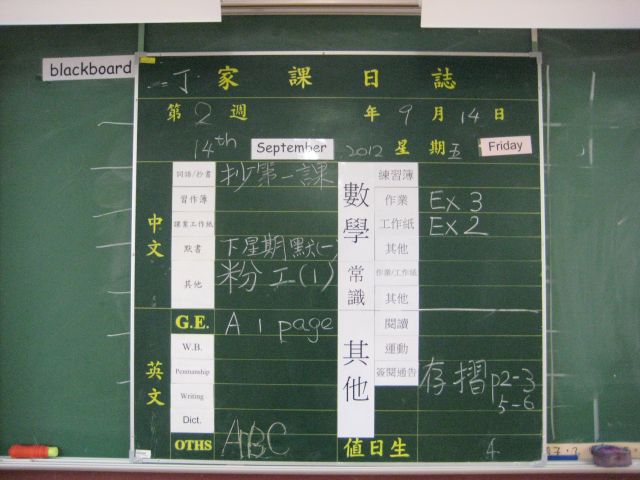 blackboard
二丁 家課日誌
第2週 年9月14日
14th September 2012 星期五 Friday
中文
詞語/抄書 抄第一課
習作簿
課業工作紙
默書 下星期默(一)
其他 粉工(1)
英文
G.E. A 1 page
W.B.
Penmanship
Writing
Dict.
OTHS ABC
數學
練習簿
作業 Ex 3
工作紙 Ex 2
其他
常識
作業/工作紙
其他
其他
閱讀
運動
簽閱通告 存摺 p2-3
5-6
值日生 4